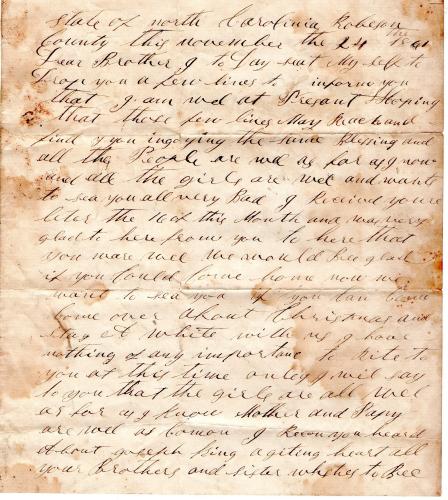 State of north Carolinia Robeson
County this november the 24 the 1861
Dear Brother I to Day seat My self to
Drop you a few lines to inform you
that I am wel at Presant Hoping
that those few lines May Reach and
find you ingoying the same Blessing and
all the People are wel as far as I now
and all the girls are wel and wants
to sea you all very Bad I Received youre
leter the 10 of this Month and was very
glad to here from you to here that
you ware well we would Bee glad
if you Could Come home now we
want to sea you if you can Come
Come over about Christmas and
stay A white with us I have
nothing of any importanc to Rite to
you at this time only I wil say
to you that the girls are all wel
as far as I know Mother and Papy
are wel as Comon I know you heard
About Joseph Bing agiting heart all
your Brothers and sister wishes to Bee